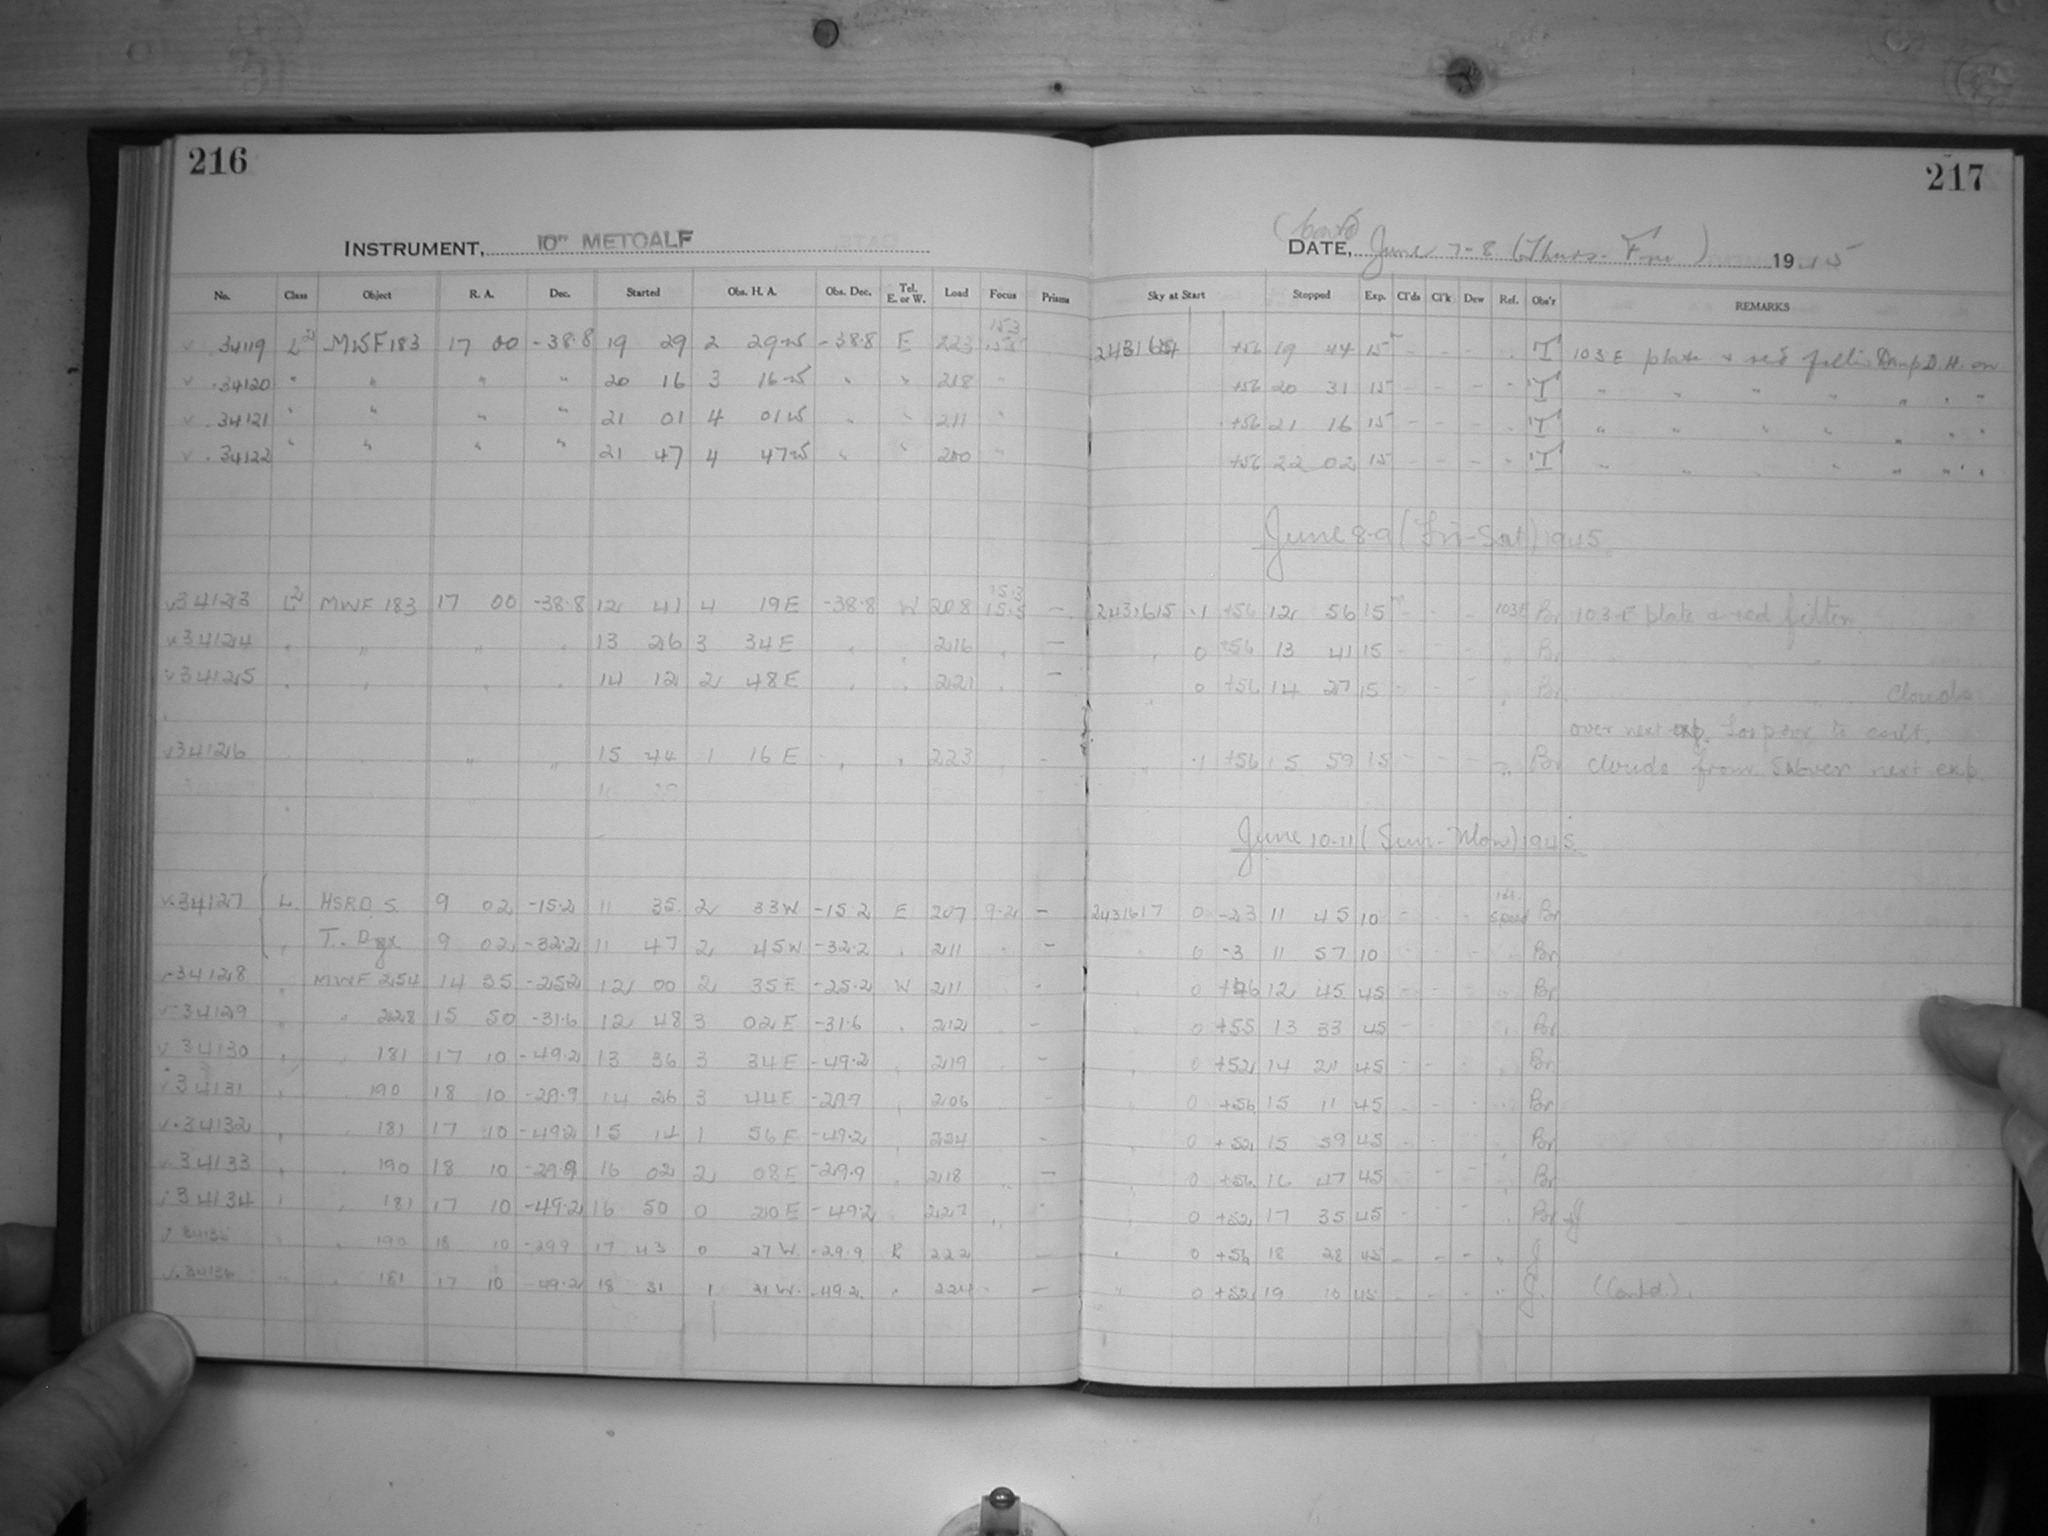 216
217
INSTRUMENT, 10" METCALF
DATE, June 7-8 (Thurs. Fri) 1945
No. Class Object R. A. Dec. Started Obs. H. A. Obs. Dec. Tel. E. or W. Load Focus Prisms Sky at Start Stopped Exp. Cl'ds Cl'k Dew Ref. Obs'r REMARKS
34119 L2 MWF 183 17 00 -38.8 19 29 2 29 W -38.8 E 223 +56 19 44 15 T 103 E plate + red filter. Damp D. H. on
34120 " " " " 20 16 3 16 W " " 218 " +56 20 31 15 - - - " T " " " " " " "
34121 " " " " 21 01 4 01 W " " 211 " +56 21 16 15 - - - " T " " " " " " "
34122 " " " " 21 47 4 47 W " " 200 " +56 22 02 15 - - - " T " " " " " "
June 8-9 (Fri-Sat) 1945
v34123 L2 MWF 183 17 00 -38.8 12 41 4 19 E -38.8 W 208 15.3 15.5 - 2431615 .1 +56 12 56 15 - - - 103E Br 103-E plate & red filter.
v34124 " " " " 13 26 3 34 E " " 216 " - " 0 +56 13 41 15 - - - " Br
v34125 " " " " 14 12 2 48 E " " 221 " - " 0 +56 14 27 15 - - - " Br Clouds
over next exp. to
v34126 " " 15 44 1 16 E " " 223 " - " .1 +56 15 59 15 - - - " Br clouds from SW over next exp.
June 10-11 (Sun-Mon) 1945
v34127 L. HSRD S. 9 02 -15.2 11 35 2 33 W -15.2 E 207 9.2 - 2431617 0 -23 11 45 10 - - Br
" 9 02 -32.2 11 47 2 45 W -32.2 " 211 - 0 -3 11 57 10 Br
34128 " MWF 254 14 35 -25.2 12 00 2 35 E -25.2 W 211 - 0 12 45 45 Br
34129 " " 228 15 50 -31.6 12 48 3 02 E -31.6 " 212 - 0 +55 13 33 45 Br
v34130 " " 181 17 10 -49.2 13 36 3 34 E -49.2 " 219 - 0 +52 14 21 45 Br
v34131 " " 190 18 10 -29.9 14 26 3 44 E -29.9 " 206 - 0 +56 15 11 45 Br
v.34132 " " 181 17 10 -49.2 15 14 1 56 E -49.2 " 224 - 0 +52 15 59 45 Br
34133 " " 190 18 10 -29.9 16 02 2 08 E -29.9 " 218 - 0 +56 16 47 45 Br
34134 " " 181 17 10 -49.2 16 50 0 20 E -49.2 " 227 - 0 +52 17 35 45 Br
34135 " " 190 18 10 -29.9 17 43 0 27 W. -29.9 E 222 - " 0 +56 18 28 45 - - - "
v.34136 " " 181 17 10 -49.2 18 31 1 21 W. -49.2 " 224 - " 0 +52 19 16 45 - - - " (Contd.).